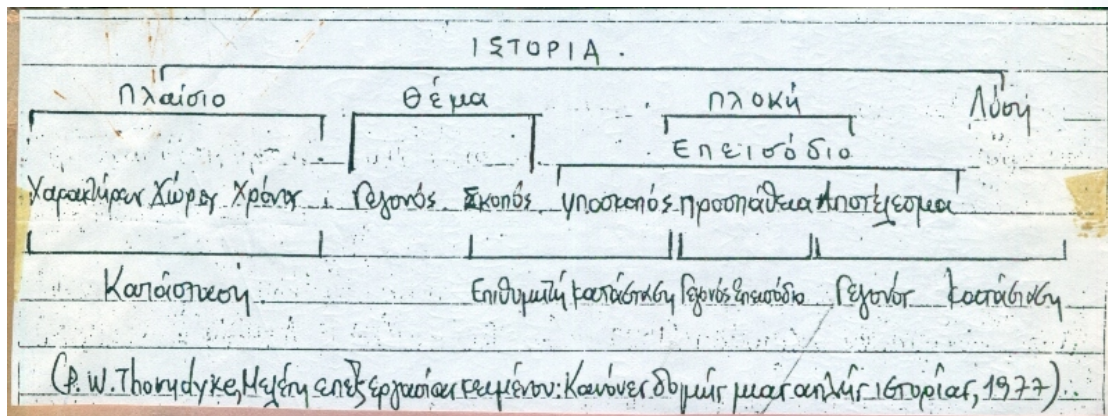 ΙΣΤΟΡΙΑ.
Πλαίσιο Θέμα Πλοκή Λύση
Επεισόδιο
Χαρακτήρες Χώρος Χρόνος Γεγονός Σκοπός Υποσκοπός Προσπάθεια Αποτέλεσμα
Κατάσταση Επιθυμητή κατάσταση Γεγονός Επεισόδιο Γεγονός κατάσταση
(P. W. Thorndyke, Μελέτη επεξεργασίας κειμένου: Κανόνες δομής μιας απλής ιστορίας, 1977).